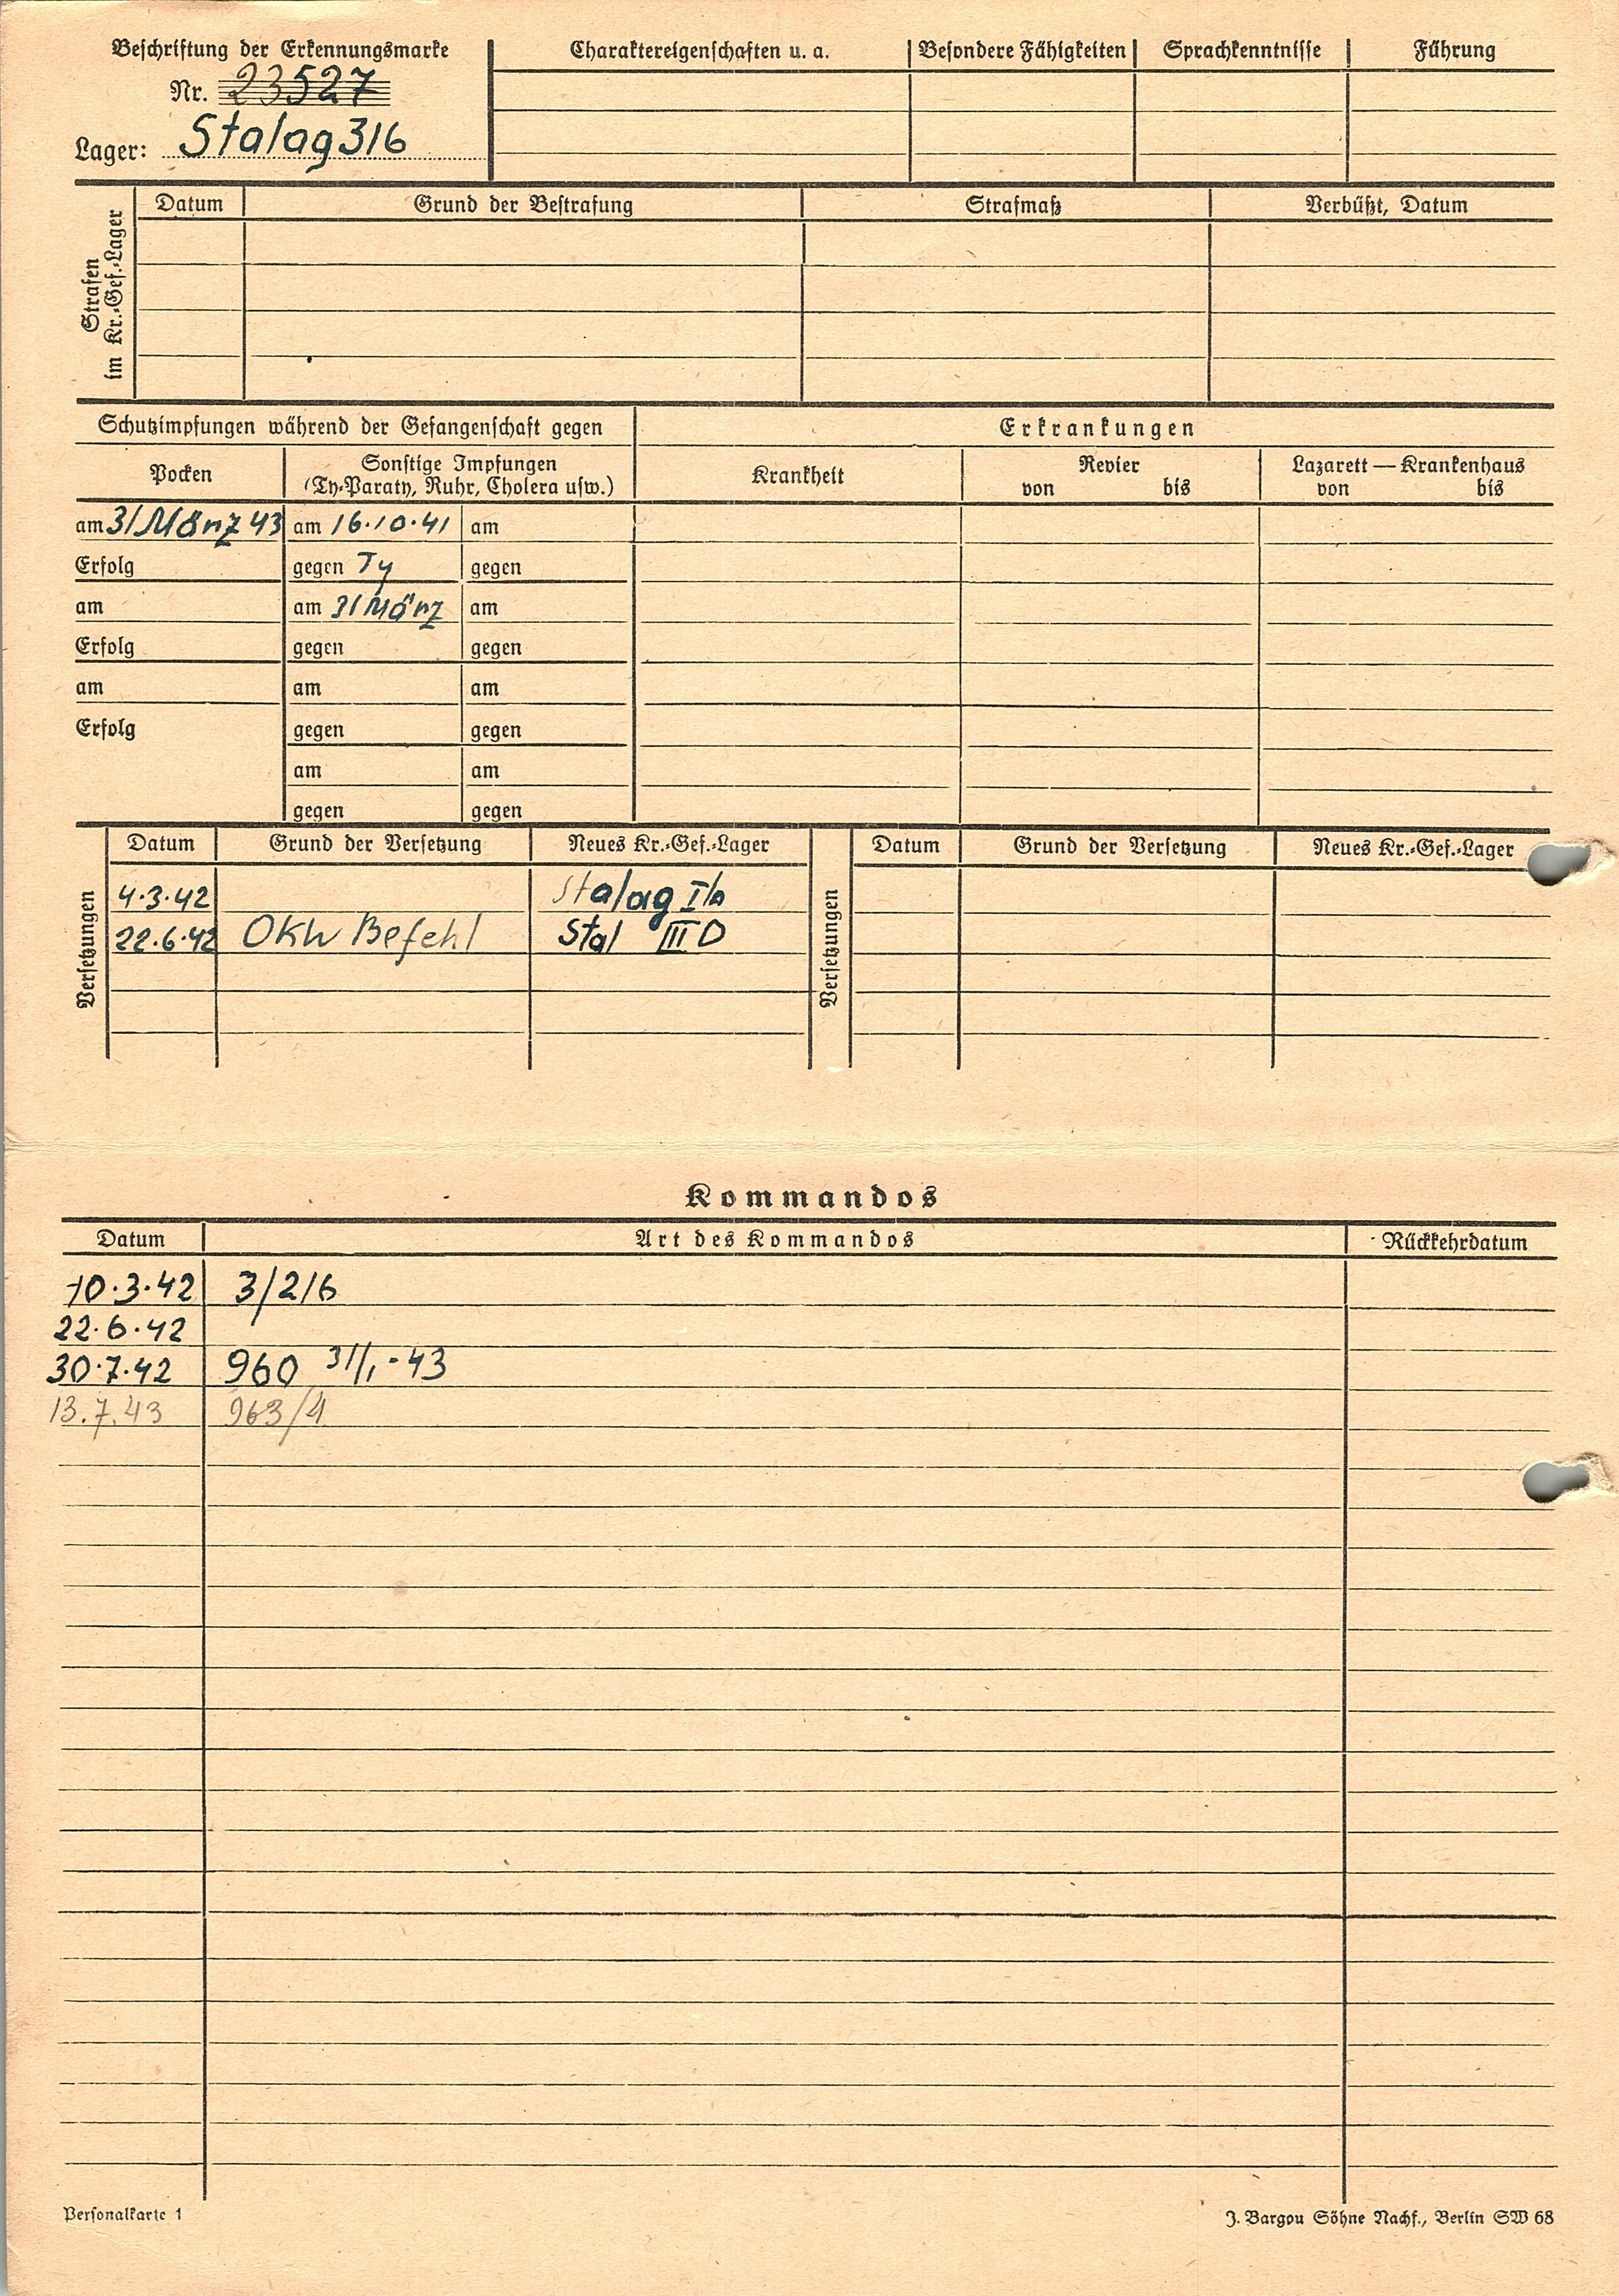 Beschriftung der Erkennungsmarke
Nr. 23527
Lager: Stalag 316
Charaktereigenschaften u. a. Besondere Fähigkeiten Sprachkenntnisse Führung
Strafen
im Kr.-Gef.-Lager
Datum Grund der Bestrafung Strafmaß Verbüßt, Datum
Schutzimpfungen während der Gefangenschaft gegen Erkrankungen
Pocken Sonstige Impfungen
(Ty-Paraty, Ruhr, Cholera usw.)
Krankheit Revier Lazarett — Krankenhaus
von bis von bis
am 31 März 43 am 16.10.41 am
Erfolg gegen Ty gegen
am am 31 März am
Erfolg gegen gegen
am am am
Erfolg gegen gegen
am am
gegen gegen
Versetzungen
Datum Grund der Versetzung Neues Kr.-Gef.-Lager
4.3.42 Stalag
22.6.42 OKW Befehl Stal III D
Versetzungen
Datum Grund der Versetzung Neues Kr.-Gef.-Lager
Kommandos
Datum Art des Kommandos Rückkehrdatum
10.3.42 3/216
22.6.42
30.7.42 960 31/1.-43
13.7.43 963/4
Personalkarte 1 J. Bargou Söhne Nachf., Berlin SW 68